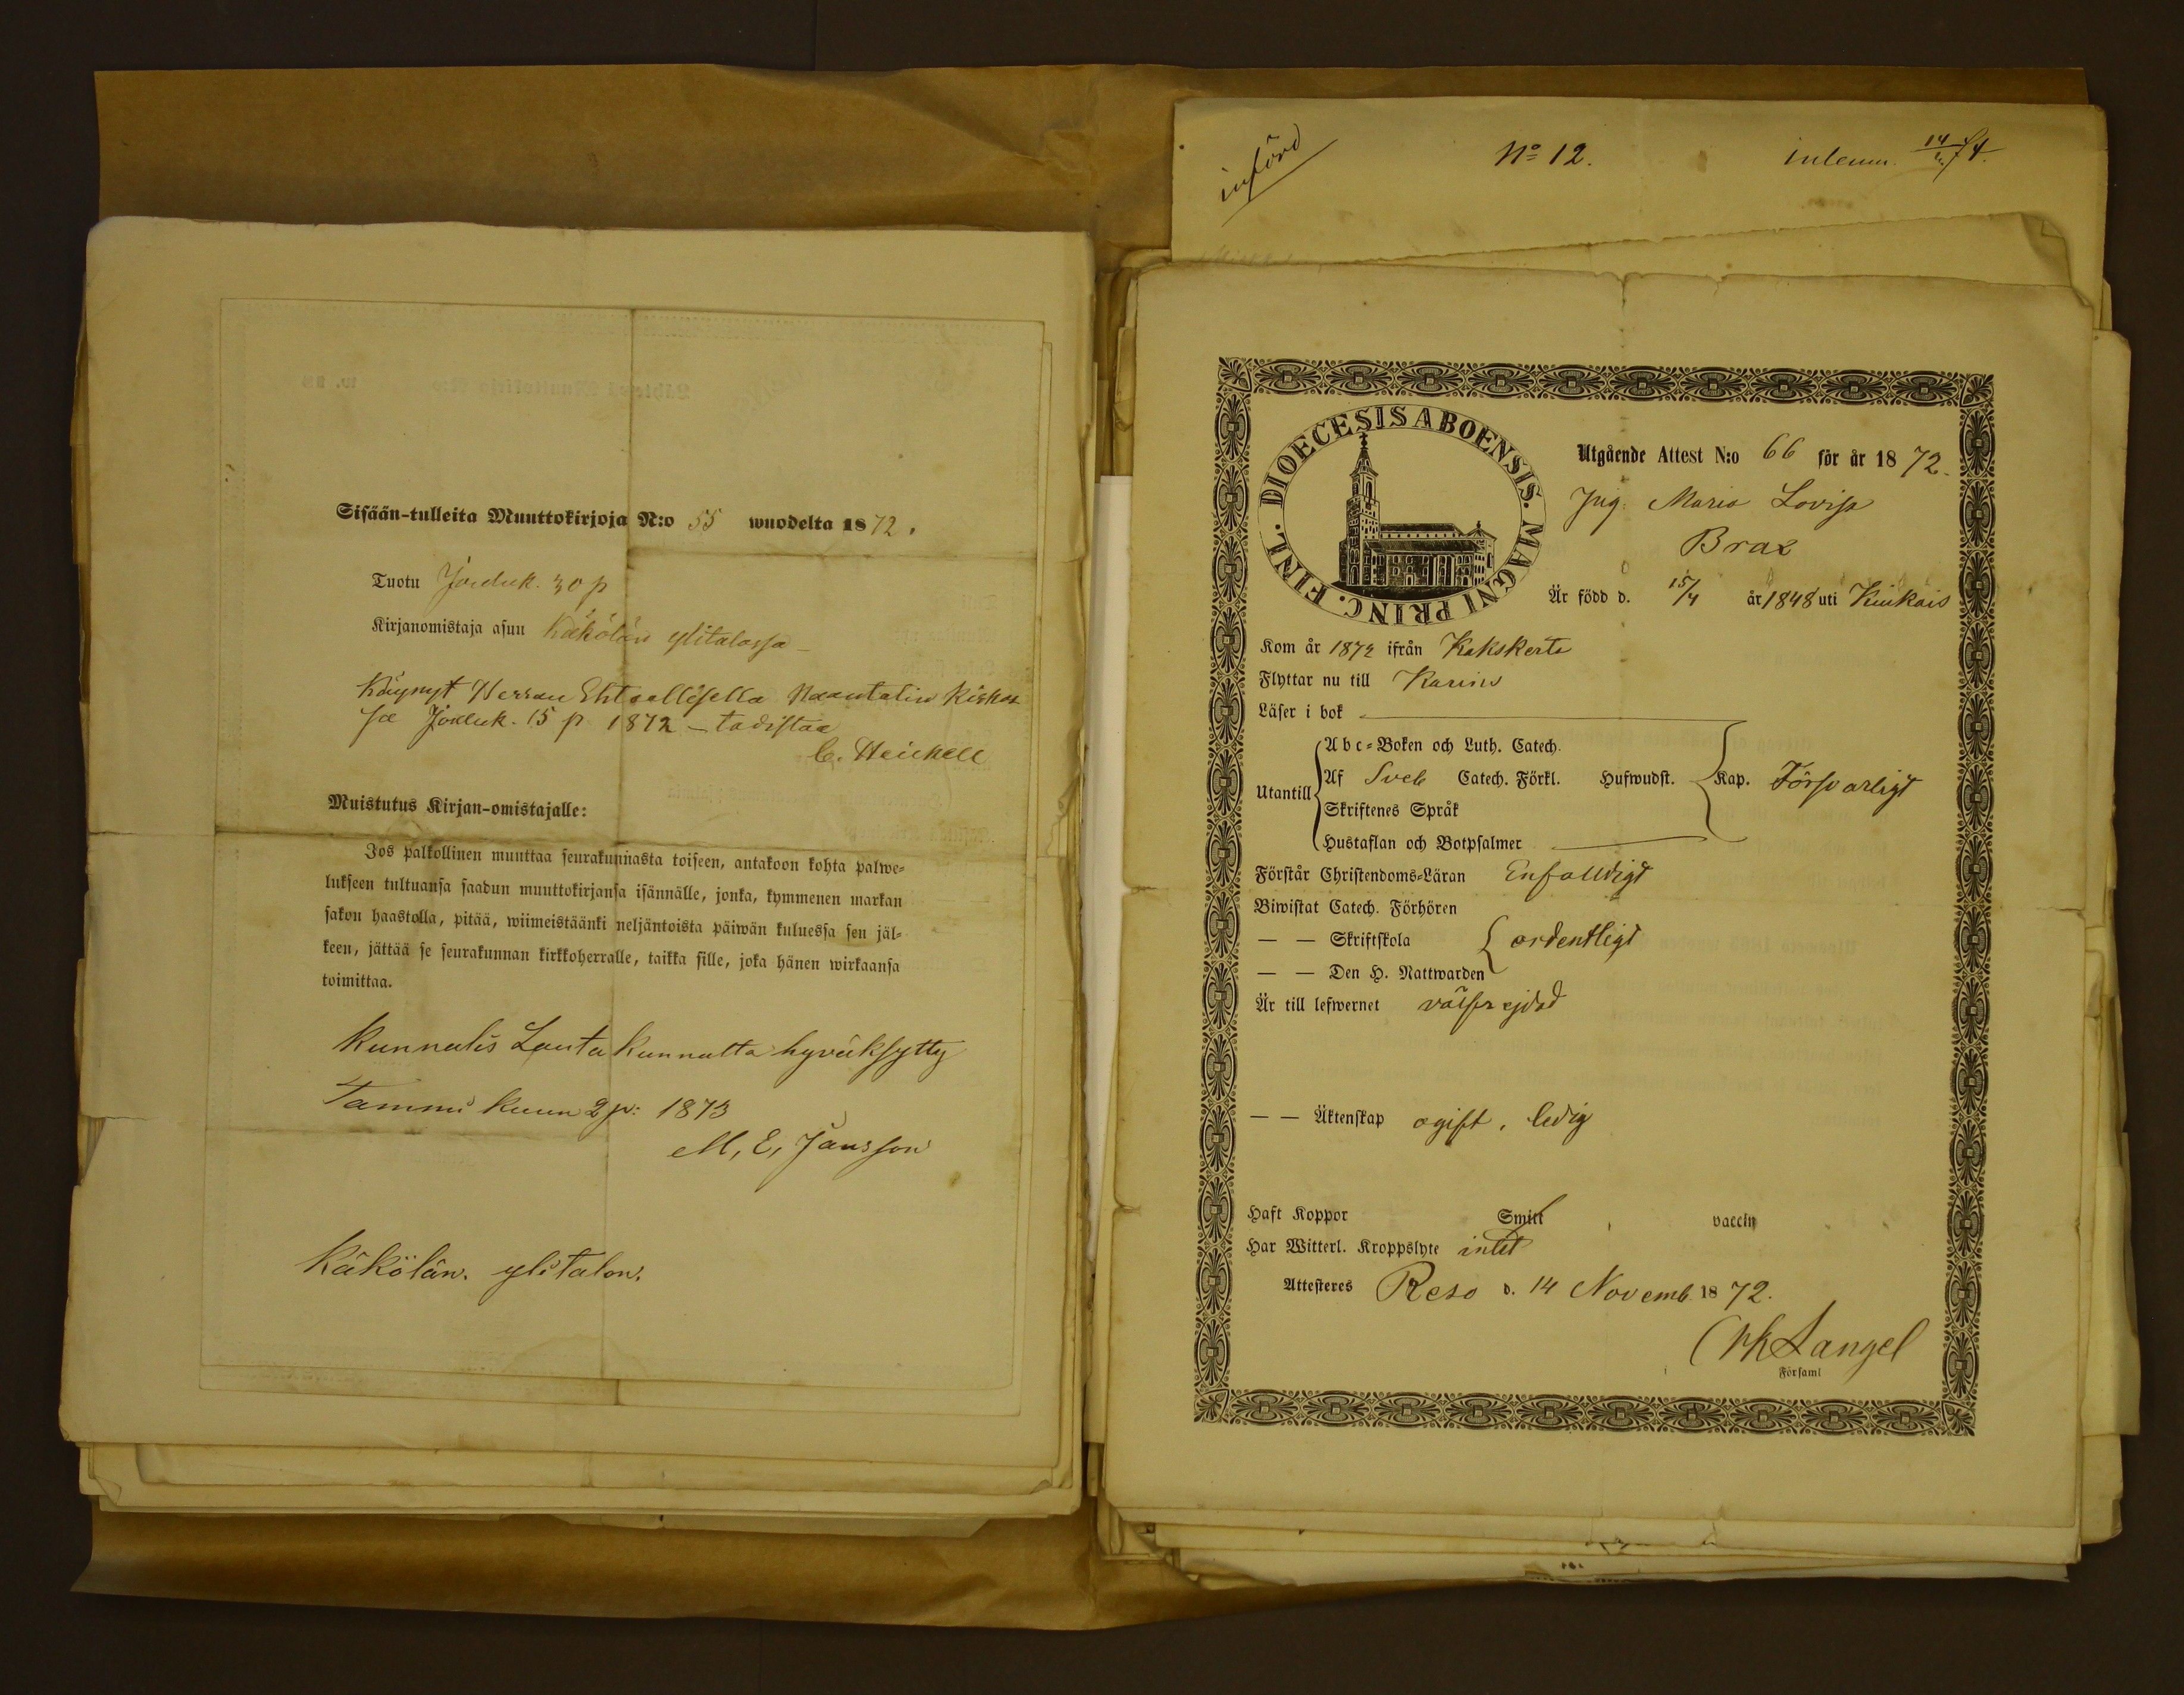 Sisään-tulleita Muuttokirjoja N:o 55 wuodelta 1872.
Tuotu Jouluk. 30 p
Kirjanomistaja asuu Käkölän ylitalossa
Käynyt Herran Ehtoollisella Naantalin kirkos
sa Jouluk. 15 p. 1872 – todistaa
C. Heickell
Muistutus Kirjan-omistajalle:
Jos palkollinen muuttaa seurakunnasta toiseen, antakoon kohta palwe-
lukseen tultuansa saadun muuttokirjansa isännälle, jonka, kymmenen markan
sakon haastolla, pitää, wiimeistäänki neljäntoista päiwän kuluessa sen jäl-
keen, jättää se seurakunnan kirkkoherralle, taikka sille, joka hänen wirkaansa
toimittaa.
Kunnalis Lautakunnalta hyväksytty
Tammi kuun 2 p: 1873
M, E, Jansson
Käkölän. ylitalon.
införd
No 12.
DIOECESIS ABOENSIS. MAGNI PRINC. FINL.
Utgående Attest N:o 66 för år 1872.
Pig. Maria Lovisa
Brax
Är född d. 15/4 år 1848 uti Kiukais
Kom år 1872 ifrån Kakskerta
Flyttar nu till Karins
Läser i bok
Utantill
Abc-Boken och Luth. Catech.
Af Sveb Catech. Förkl. Hufwudst. Kap. Försvarligt
Skriftenes Språk
Hustaflan och Botpsalmer
Förstår Christendoms-Läran Enfalldigt
Biwistat Catech. Förhören
— — Skriftskola ordentligt
— — Den H. Nattwarden
Är till lefwernet välfrejdad
— — Äktenskap ogift, ledig
Haft Koppor Smitt vaccin
Har Witterl. Kroppslyte intet
Attesteres Reso d. 14 Novemb. 1872.
Langel
Församl